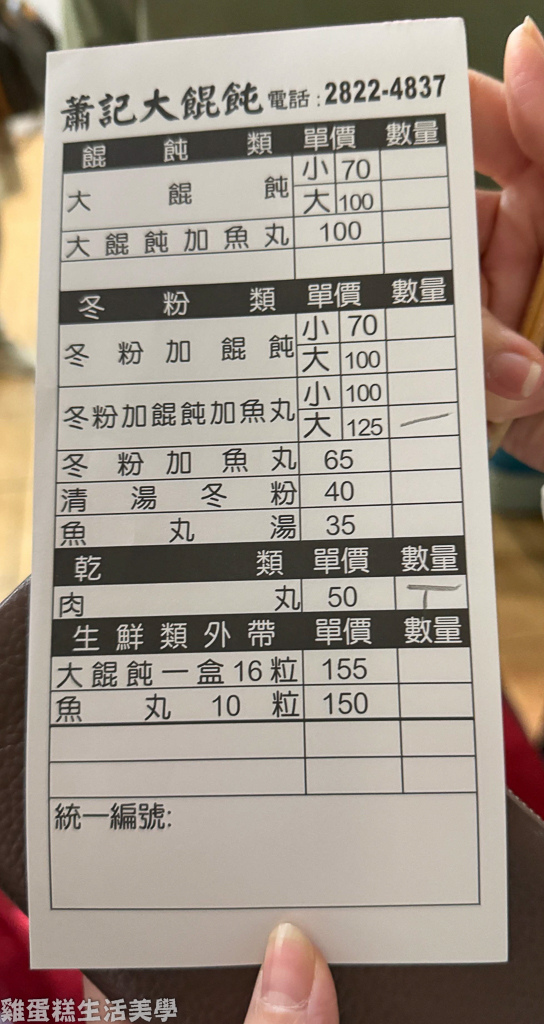 蕭記大餛飩 電話:2822-4837
餛飩類 單價 數量
大餛飩 小 70
大 100
大餛飩加魚丸 100
冬粉類 單價 數量
冬粉加餛飩 小 70
大 100
冬粉加餛飩加魚丸 小 100
大 125 一
冬粉加魚丸 65
清湯冬粉 40
魚丸湯 35
乾類 單價 數量
肉丸 50 丅
生鮮類外帶 單價 數量
大餛飩一盒16粒 155
魚丸10粒 150
統一編號:
雞蛋糕生活美學